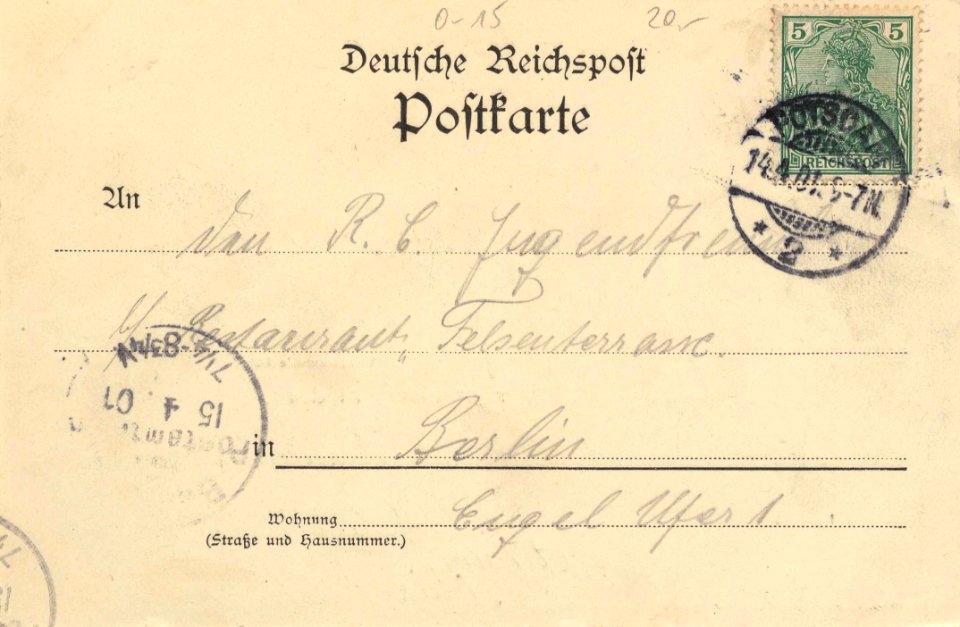 0-15 20,-
Deutsche Reichspost
Postkarte
5 5
REICHSPOST
POTSDAM
14.4.01. 6-7N.
* 2 *
An
den R. C. Jugendfreund
Restaurant „Felsenterrasse.
7¼-8¾V
15 4 01
Postamt
in Berlin
Wohnung Engel Ufer 1
(Straße und Hausnummer.)